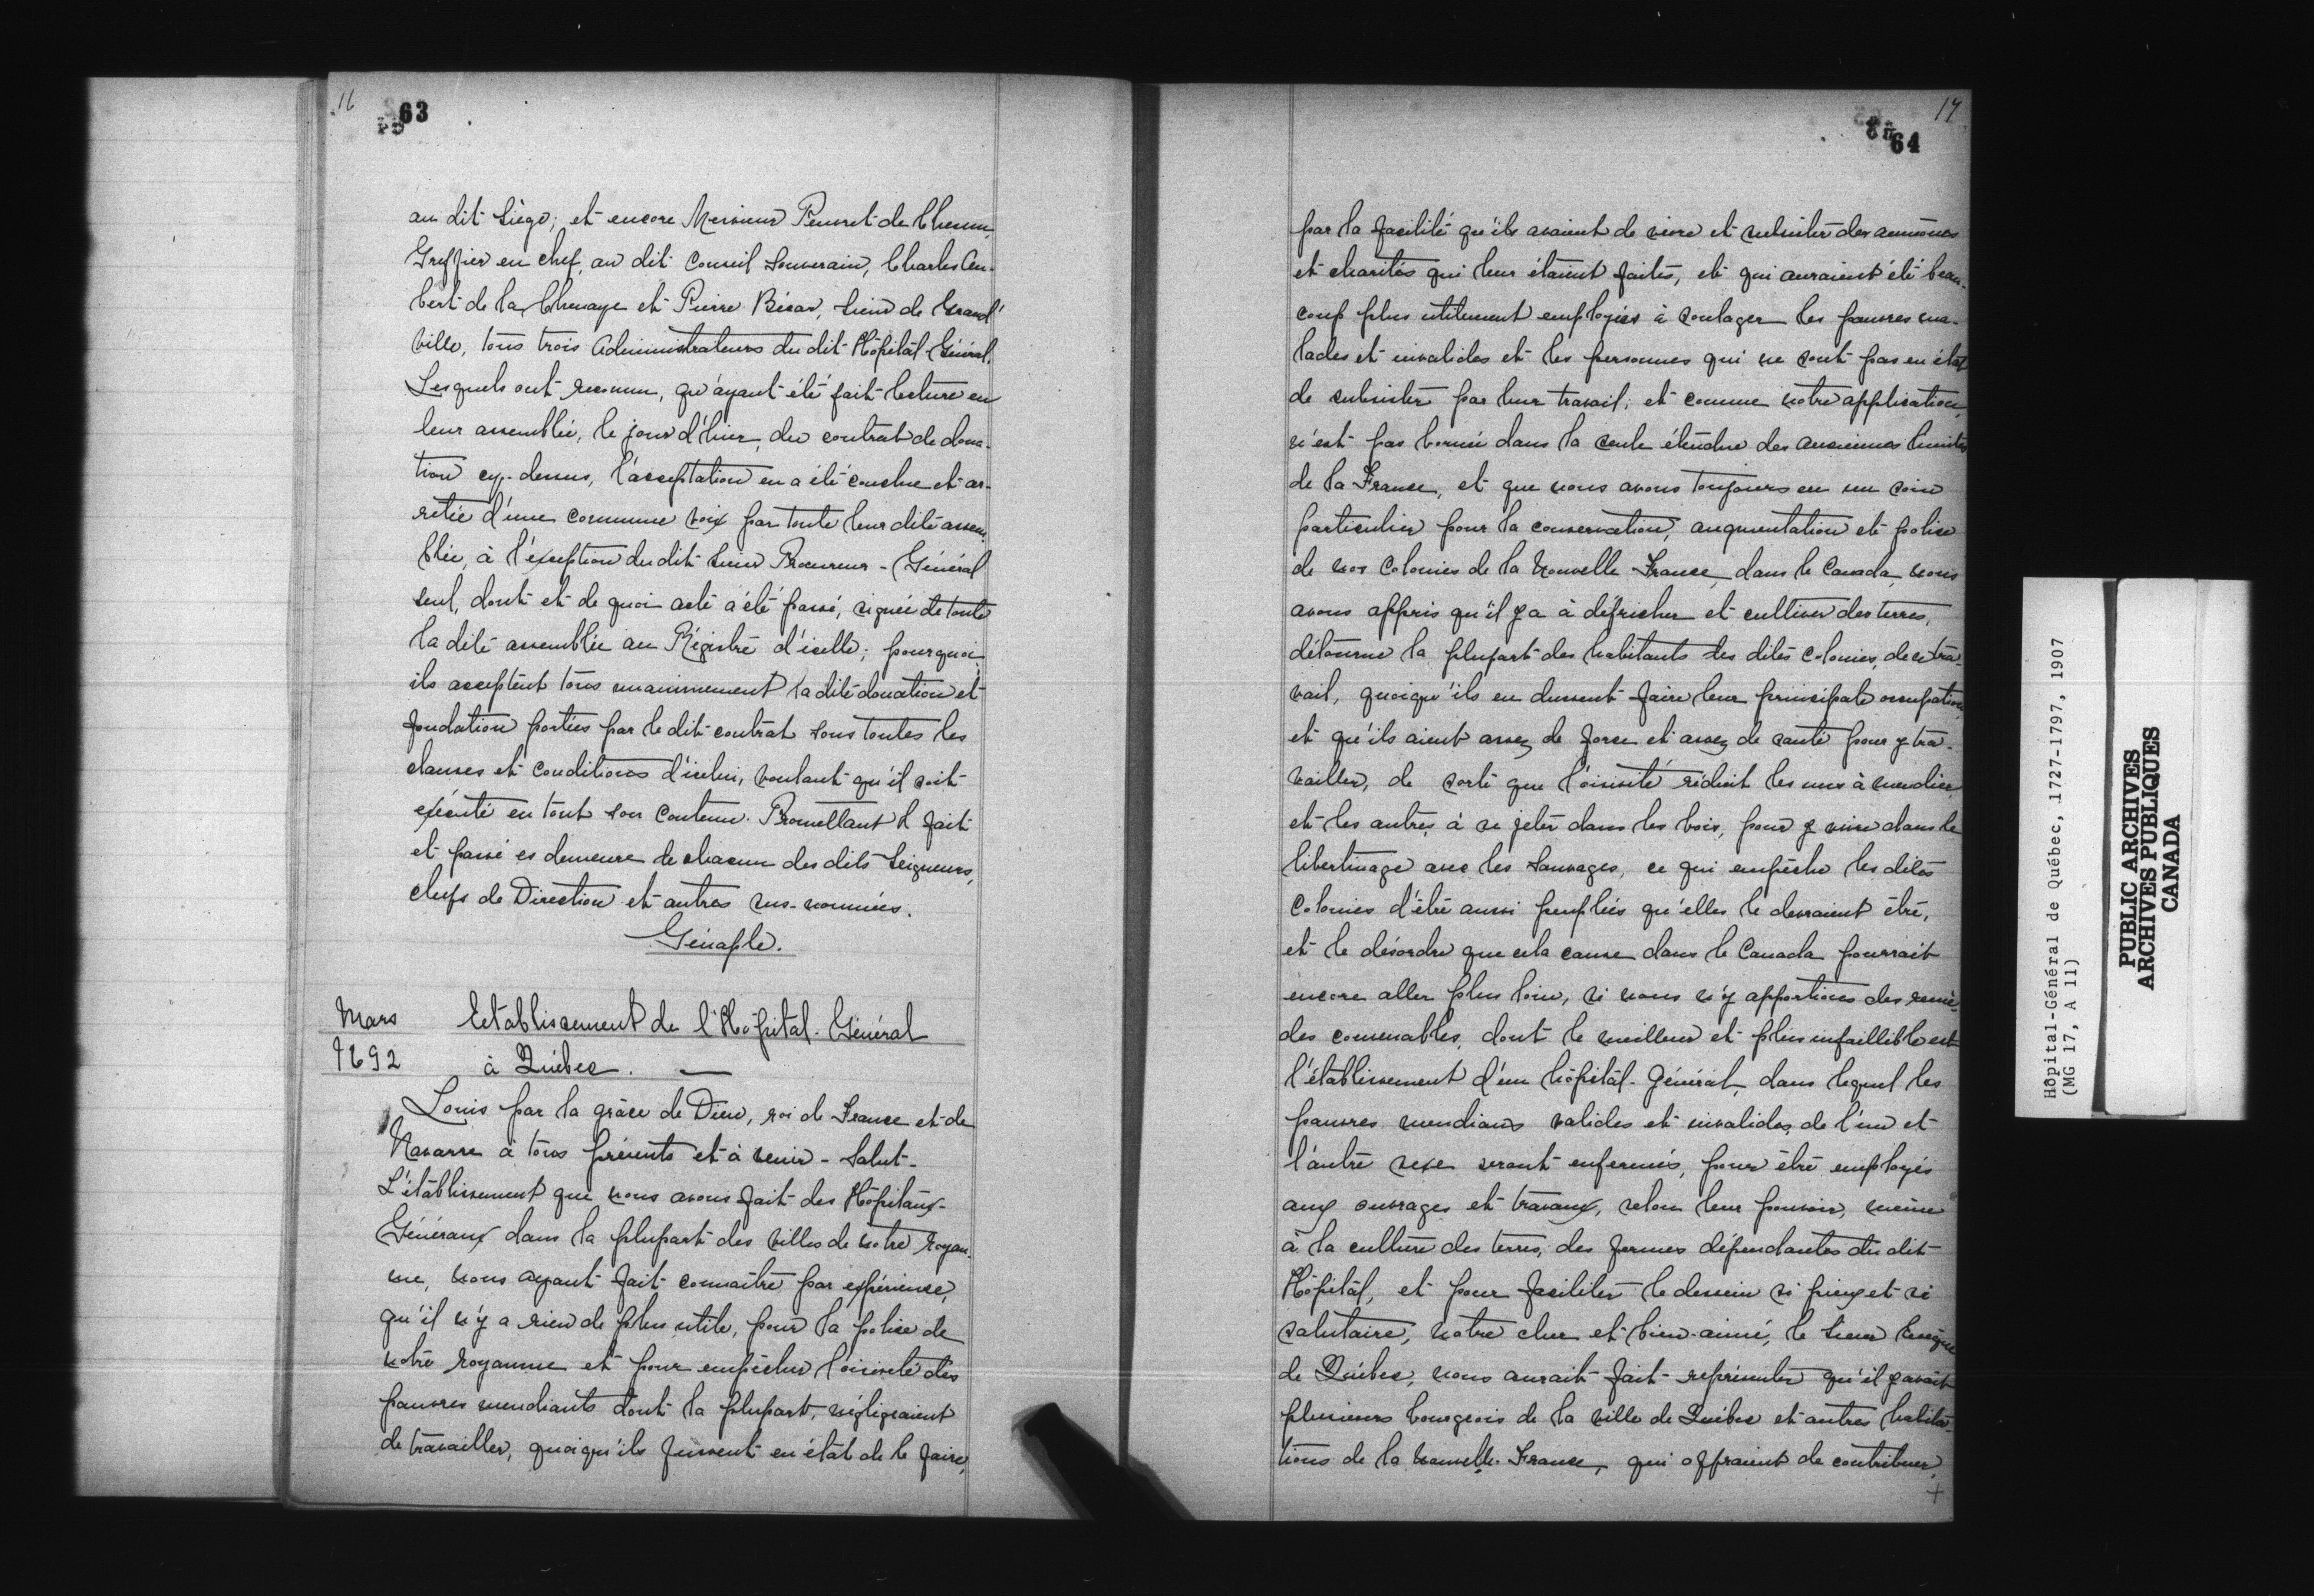 16
63
au dit Siége; et encore Messieurs Peuvret de Mesnu,
Greffier en chef, au dit Conseil Souverain, Charles Au-
bert de la Chenaye et Pierre Bécar, Sieur de Grand'
ville, tous trois Administrateurs du dit Hôpital-Général.
Lesquels ont reconnu, qu'ayant été fait lecture en
leur assemblée, le jour d'hier, du contrat de dona-
tion cy-dessus, l'acceptation en a été conclue et ar-
rêtée d'une commune voix par toute leur dite assem
blée, à l'exception du dit Sieur Procureur-Général
seul, dont et de quoi acte a été passé, signée de toute
la dite assemblée au Régistre d'icelle; pourquoi
ils acceptent tous unanimement la dite donation et
fondation portées par le dit contrat sous toutes les
clauses et conditions d'icelui, voulant qu'il soit
exécuté en tout son contenu. Promettant & fait
et passé es demeure de chacun des dits Seigneurs,
chefs de Direction et autres sus-nommés.
Génaple.
Mars
1692
Etablissement de l'Hôpital-Général
à Québec.
Louis par la grâce de Dieu, roi de France et de
Navarre à tous présents et à venir - Salut-
L'établissement que nous avons fait des Hôpitaux-
Généraux dans la plupart des villes de notre royau-
me, nous ayant fait connaître par expérience,
qu'il n'y a rien de plus utile, pour la police de
notre royaume et pour empêcher l'oisiveté des
pauvres mendiants dont la plupart, négligeaient
de travailler, quoiqu'ils fussent en état de le faire,
17
64
par la facilité qu'ils avaient de vivre et subsister des aumônes
et charités qui leur étaient faites, et qui auraient été beau-
coup plus utilement employées à soulager les pauvres ma-
lades et invalides et les personnes qui ne sont pas en état
de subsister par leur travail; et comme notre application
n'est pas bornée dans la seule étendue des anciennes limites
de la France, et que nous avons toujours eu un soin
particulier pour la conservation, augmentation et police
de nos Colonies de la Nouvelle France, dans le Canada, nous
avons appris qu'il y a à défricher et cultiver des terres,
détourne la plupart des habitants des dites Colonies, de ce tra-
vail, quoiqu'ils en dussent faire leur principale occupation,
et qu'ils aient assez de force et assez de santé pour y tra-
vailler, de sorte que l'oisiveté réduit les uns à mendier
et les autres à se jeter dans les bois, pour y vivre dans le
libertinage avec les Sauvages, ce qui empêche les dites
Colonies d'être aussi peuplées qu'elles le devraient être,
et le désordre que cela cause dans le Canada pourrait
encore aller plus loin, si nous n'y apportions des remè-
des convenables, dont le meilleur et plus infaillible est
l'établissement d'un hôpital-Général, dans lequel les
pauvres mendians valides et invalides, de l'un et
l'autre sexe seront enfermés, pour être employés
aux ouvrages et travaux, selon leur pouvoir, même
à la culture des terres, des fermes dépendantes du dit
Hôpital, et pour faciliter le dessein si pieux et si
salutaire, notre cher et bien-aimé, le Sieur Evêque
de Québec, nous aurait fait représenter qu'il y avait
plusieurs bourgeois de la ville de Québec et autres habita-
tions de la Nouvelle-France, qui offraient de contribuer,
+
Hôpital-Général de Québec, 1727-1797, 1907
(MG 17, A 11)
PUBLIC ARCHIVES
ARCHIVES PUBLIQUES
CANADA